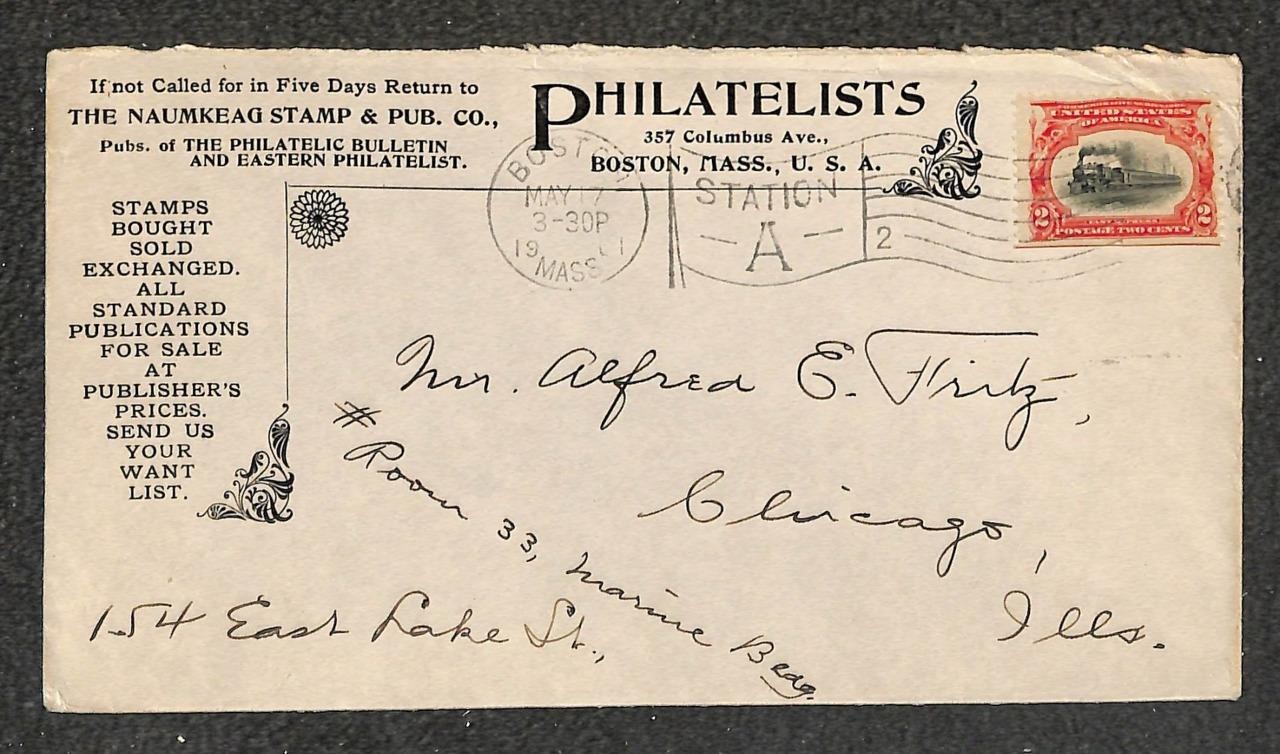 If not Called for in Five Days Return to
THE NAUMKEAG STAMP & PUB. CO.,
Pubs. of THE PHILATELIC BULLETIN
AND EASTERN PHILATELIST.
PHILATELISTS
357 Columbus Ave.,
BOSTON, MASS., U. S. A.
STAMPS
BOUGHT
SOLD
EXCHANGED.
ALL
STANDARD
PUBLICATIONS
FOR SALE
AT
PUBLISHER'S
PRICES.
SEND US
YOUR
WANT
LIST.
BOSTON
MAY 17
3-30P
1901
MASS
STATION
A
2
COMMEMORATIVE SERIES, 1901
UNITED STATES
OF AMERICA
2 FAST EXPRESS 2
POSTAGE TWO CENTS
Mr. Alfred E. Fritz,
# Room 33, Marine Bldg.
Chicago,
154 East Lake St.,
Ills.